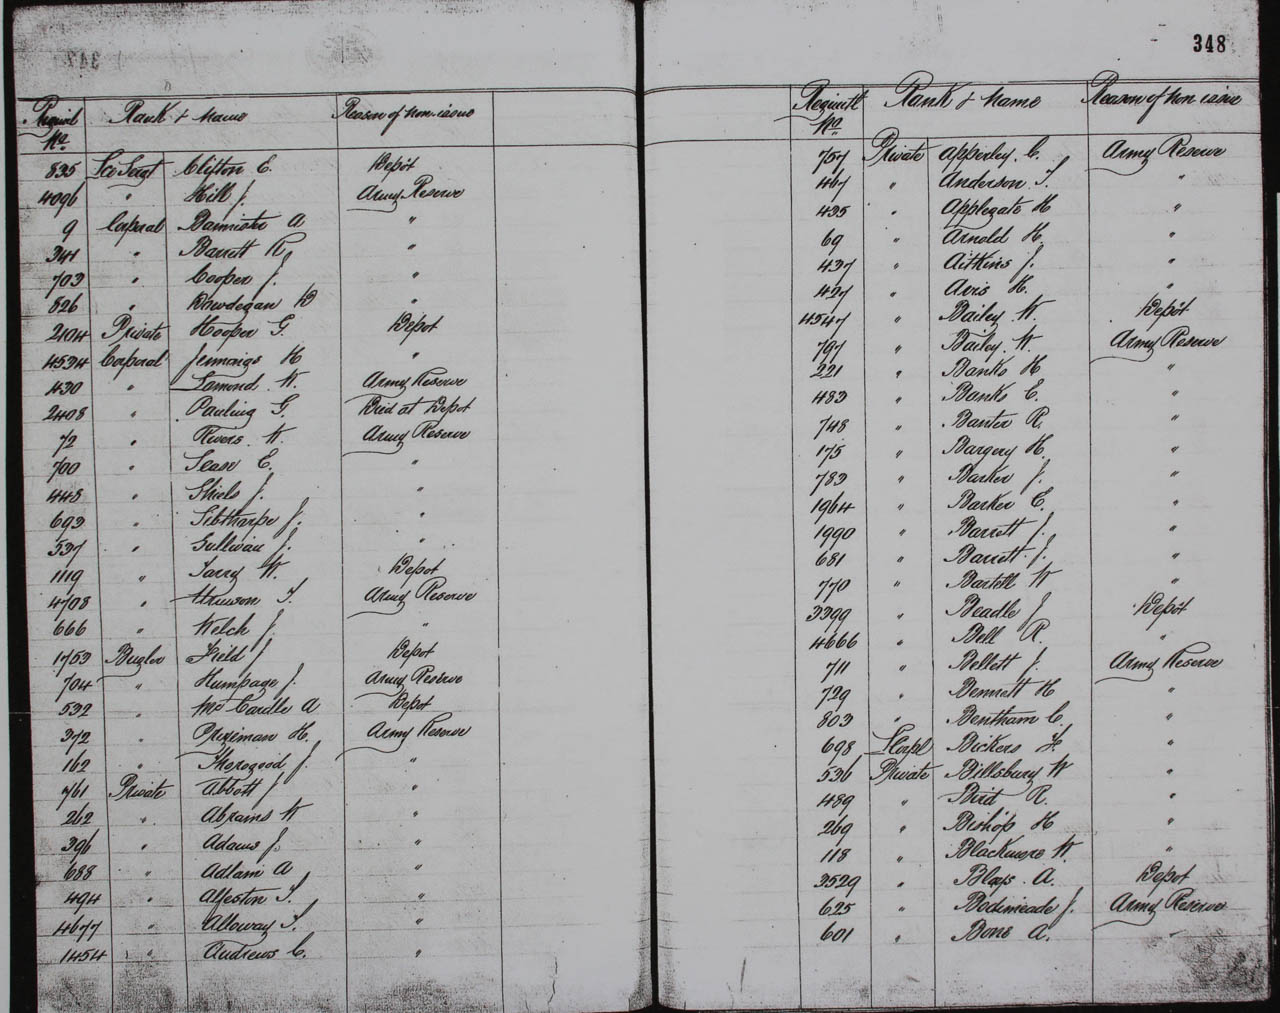 348
Regimtl No. Rank & Name Reason of Non-issue
835 Sco Sergt Clifton E. Depôt
4096 " Hill J. Army Reserve
9 Corporal Bannister A "
341 " Barrett R "
703 " Cooper J. "
826 " D "
2104 Private Hooper G. Depôt
4534 Corporal Jennings H "
430 " Lamond W. Army Reserve
2408 " Pauling G. Died at Depôt
72 " Rivers W. Army Reserve
700 " Sease E. "
448 " Shiels J. "
693 " Sibthorpe J. "
537 " Sullivan J. "
1119 " Tarry W. Depôt
4708 " T. Army Reserve
666 " Welch J. "
1753 Bugler Field J Depôt
704 " Humpage J. Army Reserve
532 " McCardle A Depôt
372 " Prizeman H. Army Reserve
162 " Thorogood J "
761 Private Abbott J "
262 " Abrams W "
396 " Adams J. "
688 " Adlam A "
494 " Alfeston T. "
4677 " Alloway T. "
1454 " Andrews C. "
Regimtl No. Rank & Name Reason of Non-issue
757 Private Apperley. C. Army Reserve
467 " Anderson T. "
435 " Applegate H "
69 " Arnold H. "
437 " Aitkins J. "
427 " Avis H. "
4547 " Bailey. W. Depôt
797 " Bailey. W. Army Reserve
221 " Banks H "
483 " Banks E. "
748 " Banter R. "
175 " Bargery H. "
783 " Barker J. "
1964 " Barker E. "
1990 " Barrett J. "
681 " Barrett J. "
770 " Bartlett W "
3399 " Beadle J Depôt
4666 " Bell R. "
711 " Bellett J. Army Reserve
729 " Bennett H "
803 " Bentham C. "
698 LCorpl Bickers F. "
536 Private Billsbury W "
489 " Bird R. "
269 " Bishop H "
118 " Blackmore W. "
3529 " Blays A. Depôt
625 " Bodimeade J. Army Reserve
601 " Bone A. "